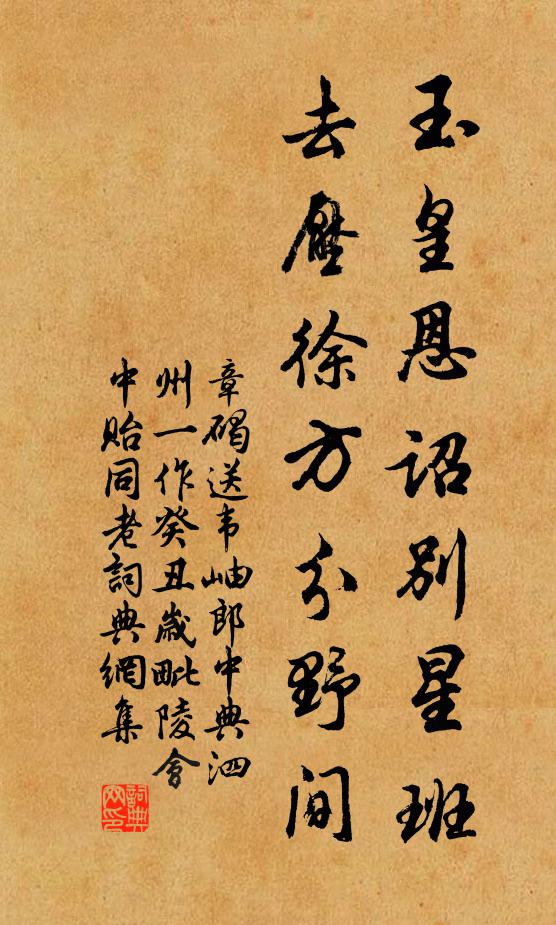 玉皇恩诏别星班
去压徐方分野间
章碣送韦岫郎中典泗
州一作癸丑岁毗陵会
中贻同老詞典網集
詞典网印